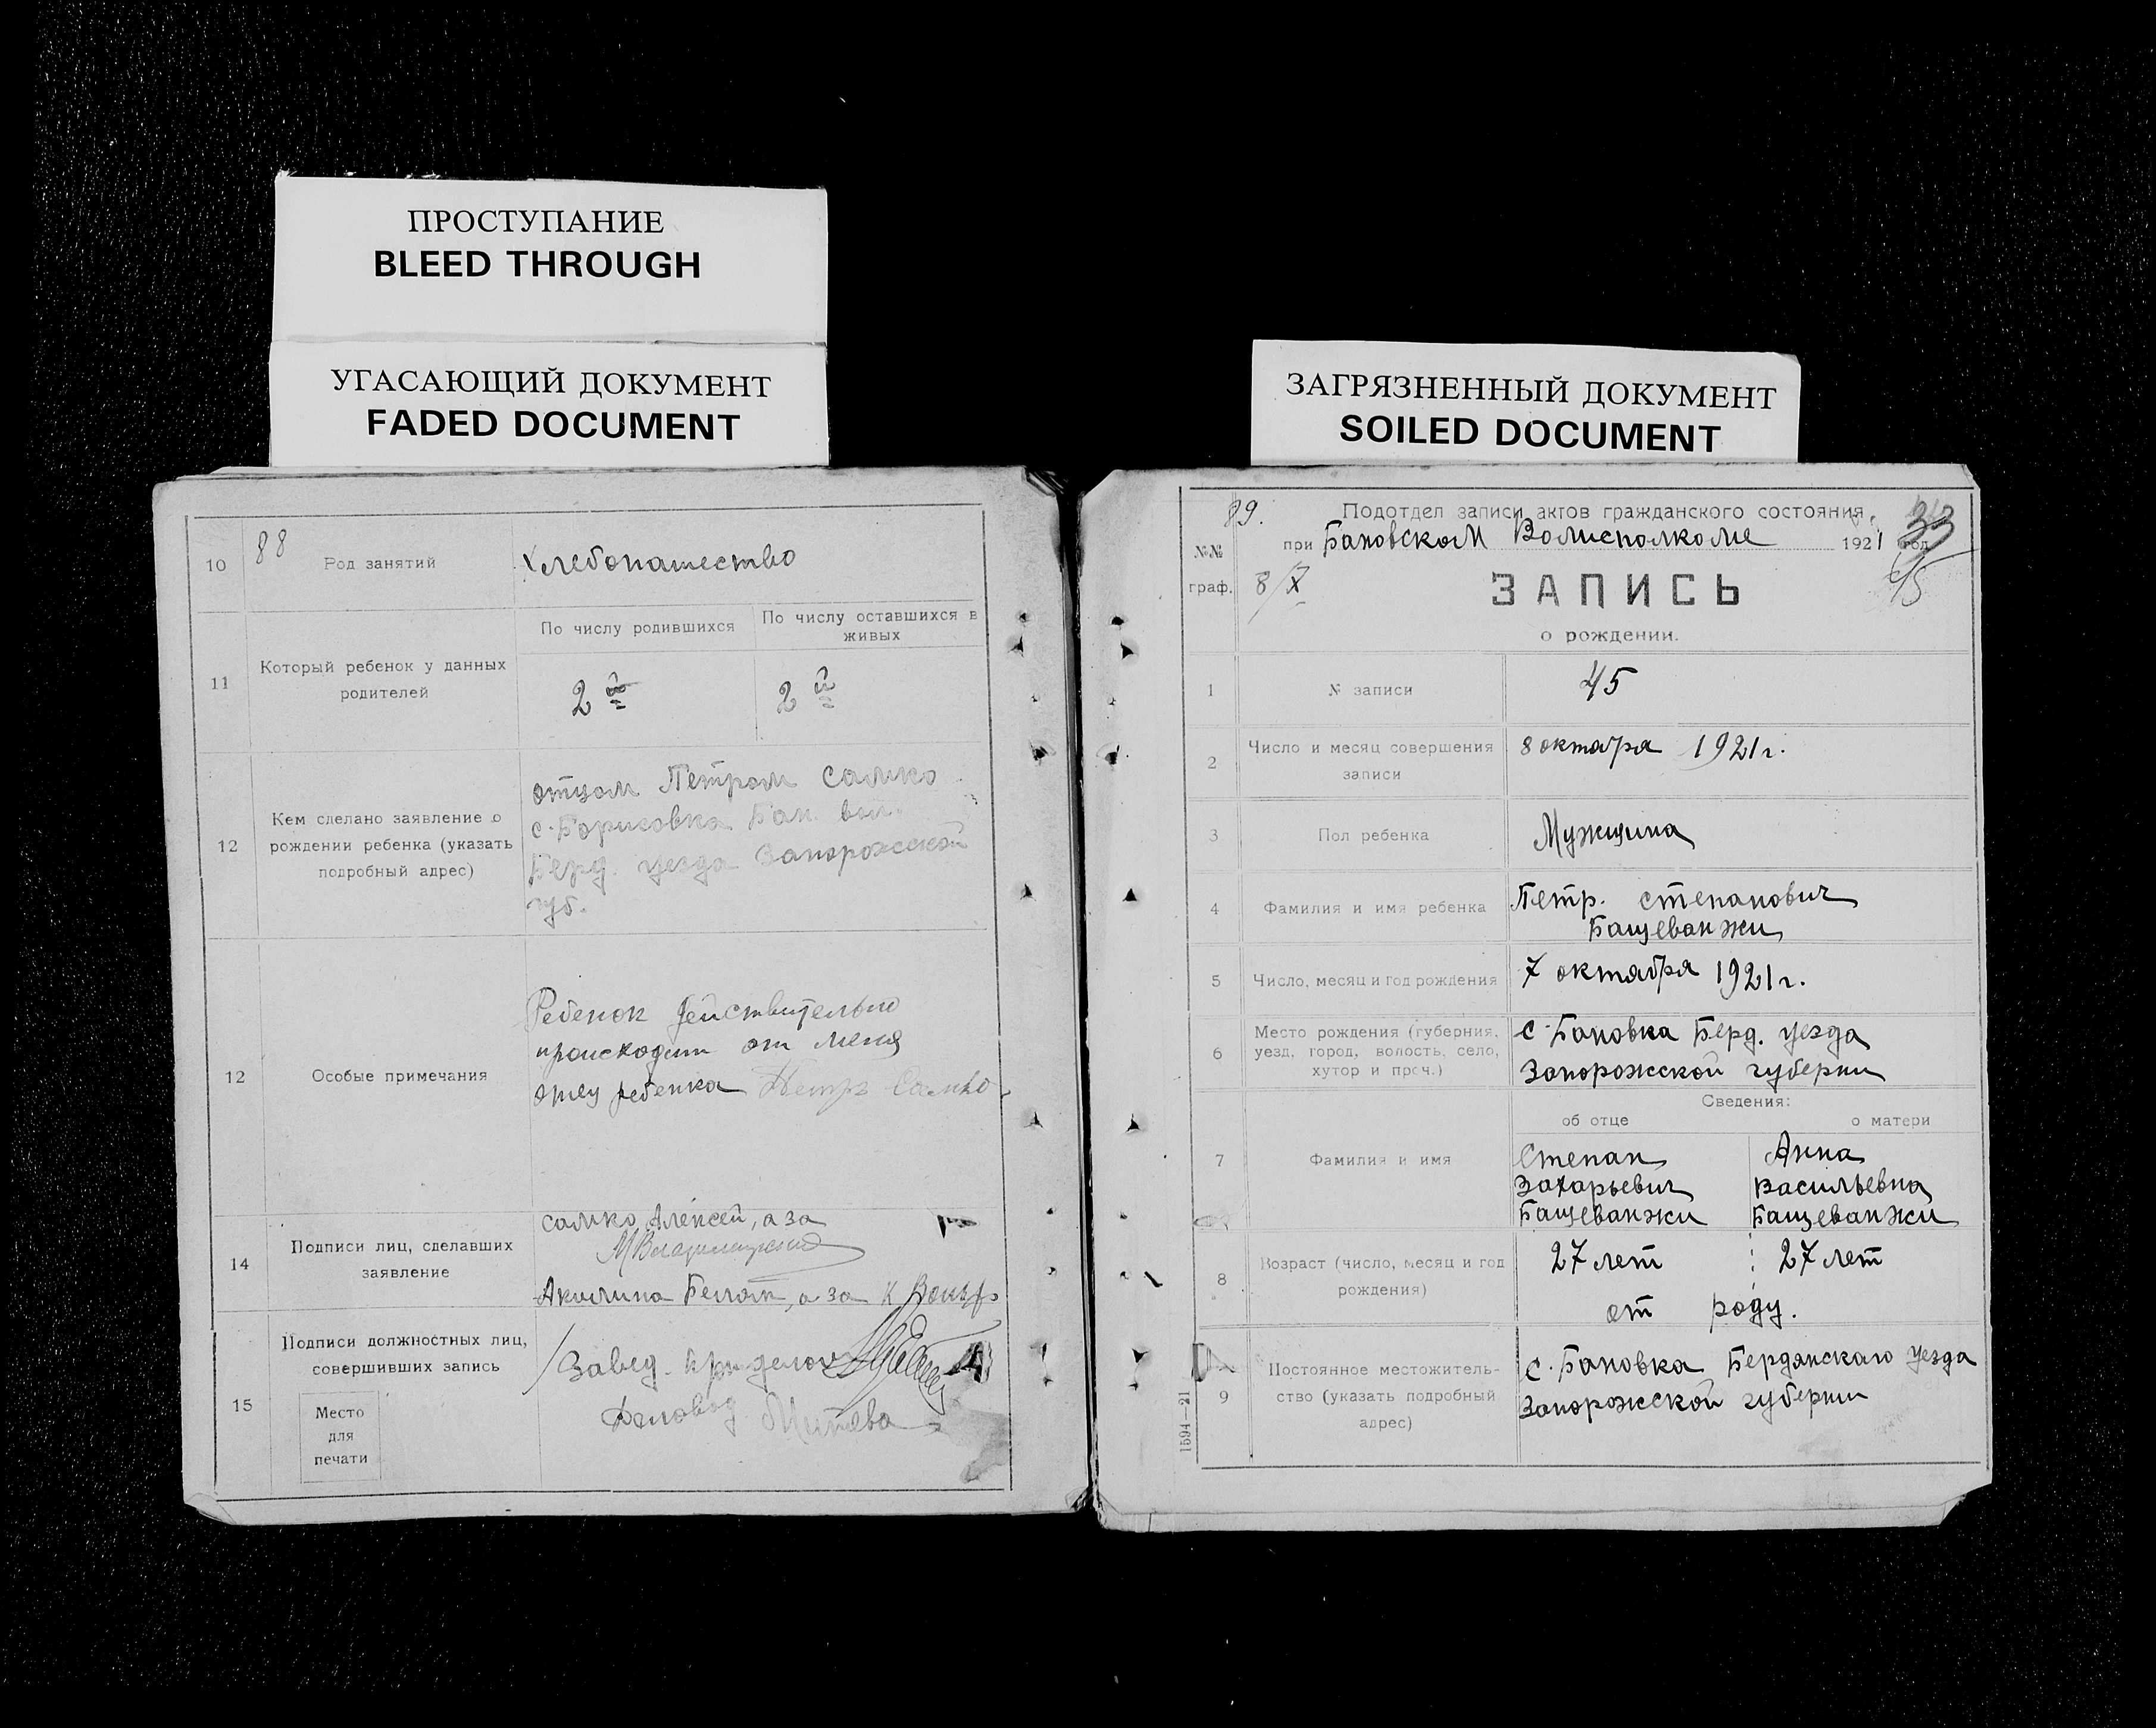 ПРОСТУПАНИЕ
BLEED THROUGH
УГАСАЮЩИЙ ДОКУМЕНТ
FADED DOCUMENT
88
10
Род занятий
Хлебопашество
11
Который ребенок у данных
родителей
По числу родившихся
По числу оставшихся в
живых
2й
2й
12
Кем сделано заявление о
рождении ребенка (указать
подробный адрес)
отцом Петром Самко
с. Борисовка Бан. вол.
Берд. уезда Запорожской
губ.
12
Особые примечания
Ребенок действительно
происходит от меня
отец ребенка Петр Самко
14
Подписи лиц, сделавших
заявление
Самко Алексей, а за
Акилина а за
15
Подписи должностных лиц,
совершивших запись
Место
для
печати
Завед.
Деловод
ЗАГРЯЗНЕННЫЙ ДОКУМЕНТ
SOILED DOCUMENT
89.
Подотдел записи актов гражданского состояния
при Бановском Волисполкоме 1921 год
33
45
№№
граф.
8/X
ЗАПИСЬ
о рождении.
1
№ записи
45
2
Число и месяц совершения
записи
8 октября 1921 г.
3
Пол ребенка
Мужщина
4
Фамилия и имя ребенка
Петр. Степанович
Бащеванжи
5
Число, месяц и год рождения
7 октября 1921 г.
6
Место рождения (губерния,
уезд, город, волость, село,
хутор и проч.)
с. Бановка Берд. уезда
Запорожской губернии
Сведения:
об отце
о матери
7
Фамилия и имя
Степан
Захарьевич
Бащеванжи
Анна
Васильевна
Бащеванжи
8
Возраст (число, месяц и год
рождения)
27 лет
27 лет
от роду.
9
Постоянное местожитель-
ство (указать подробный
адрес)
с. Бановка Бердянскаго уезда
Запорожской губернии
1594—21